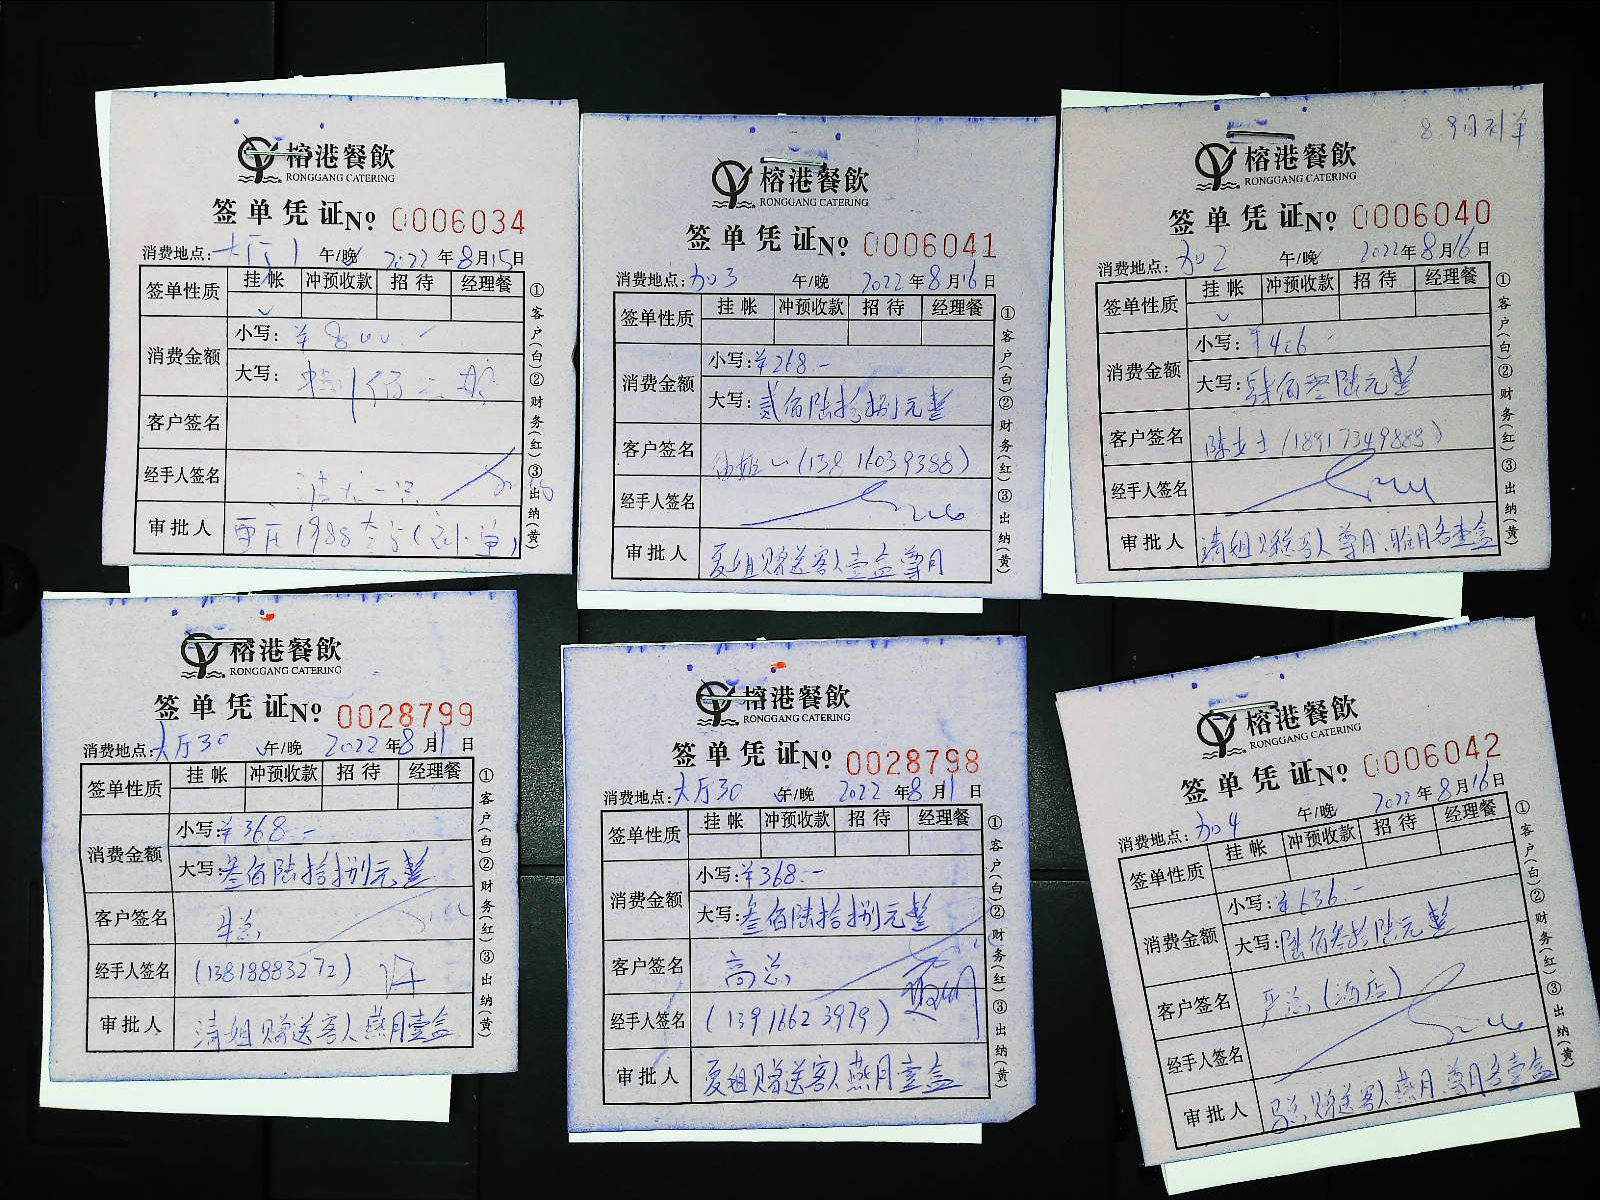 榕港餐飲
RONGGANG CATERING
签单凭证№ 0006034
消费地点:大厅1 午/晚 2022年8月15日
签单性质 挂帐 冲预收款 招待 经理餐
消费金额 小写:¥800.-
大写:捌佰元整
客户签名
经手人签名
审批人
①客户(白)②财务(红)③出纳(黄)
榕港餐飲
RONGGANG CATERING
签单凭证№ 0006041
消费地点:加3 午/晚 2022年8月16日
签单性质 挂帐 冲预收款 招待 经理餐
消费金额 小写:¥268.-
大写:贰佰陆拾捌元整
客户签名
经手人签名
审批人 夏姐赠送客人壹盒尊月
①客户(白)②财务(红)③出纳(黄)
8.9月补单
榕港餐飲
RONGGANG CATERING
签单凭证№ 0006040
消费地点:加2 午/晚 2022年8月16日
签单性质 挂帐 冲预收款 招待 经理餐
消费金额 小写:¥406.-
大写:肆佰零陆元整
客户签名 陈女士(18917349888)
经手人签名
审批人 清姐赠送客人尊月.雅月各壹盒
①客户(白)②财务(红)③出纳(黄)
榕港餐飲
RONGGANG CATERING
签单凭证№ 0028799
消费地点:大厅30 午/晚 2022年8月1日
签单性质 挂帐 冲预收款 招待 经理餐
消费金额 小写:¥368.-
大写:叁佰陆拾捌元整
客户签名 朱总
经手人签名 (13818883272)
审批人 清姐赠送客人燕月壹盒
①客户(白)②财务(红)③出纳(黄)
榕港餐飲
RONGGANG CATERING
签单凭证№ 0028798
消费地点:大厅30 午/晚 2022年8月1日
签单性质 挂帐 冲预收款 招待 经理餐
消费金额 小写:¥368.-
大写:叁佰陆拾捌元整
客户签名 高总
经手人签名 (13916623979)
审批人 夏姐赠送客人燕月壹盒
①客户(白)②财务(红)③出纳(黄)
榕港餐飲
RONGGANG CATERING
签单凭证№ 0006042
消费地点:加4 午/晚 2022年8月16日
签单性质 挂帐 冲预收款 招待 经理餐
消费金额 小写:¥636.-
大写:陆佰叁拾陆元整
客户签名 严总(酒店)
经手人签名
审批人 马总赠送客人燕月.尊月各壹盒
①客户(白)②财务(红)③出纳(黄)